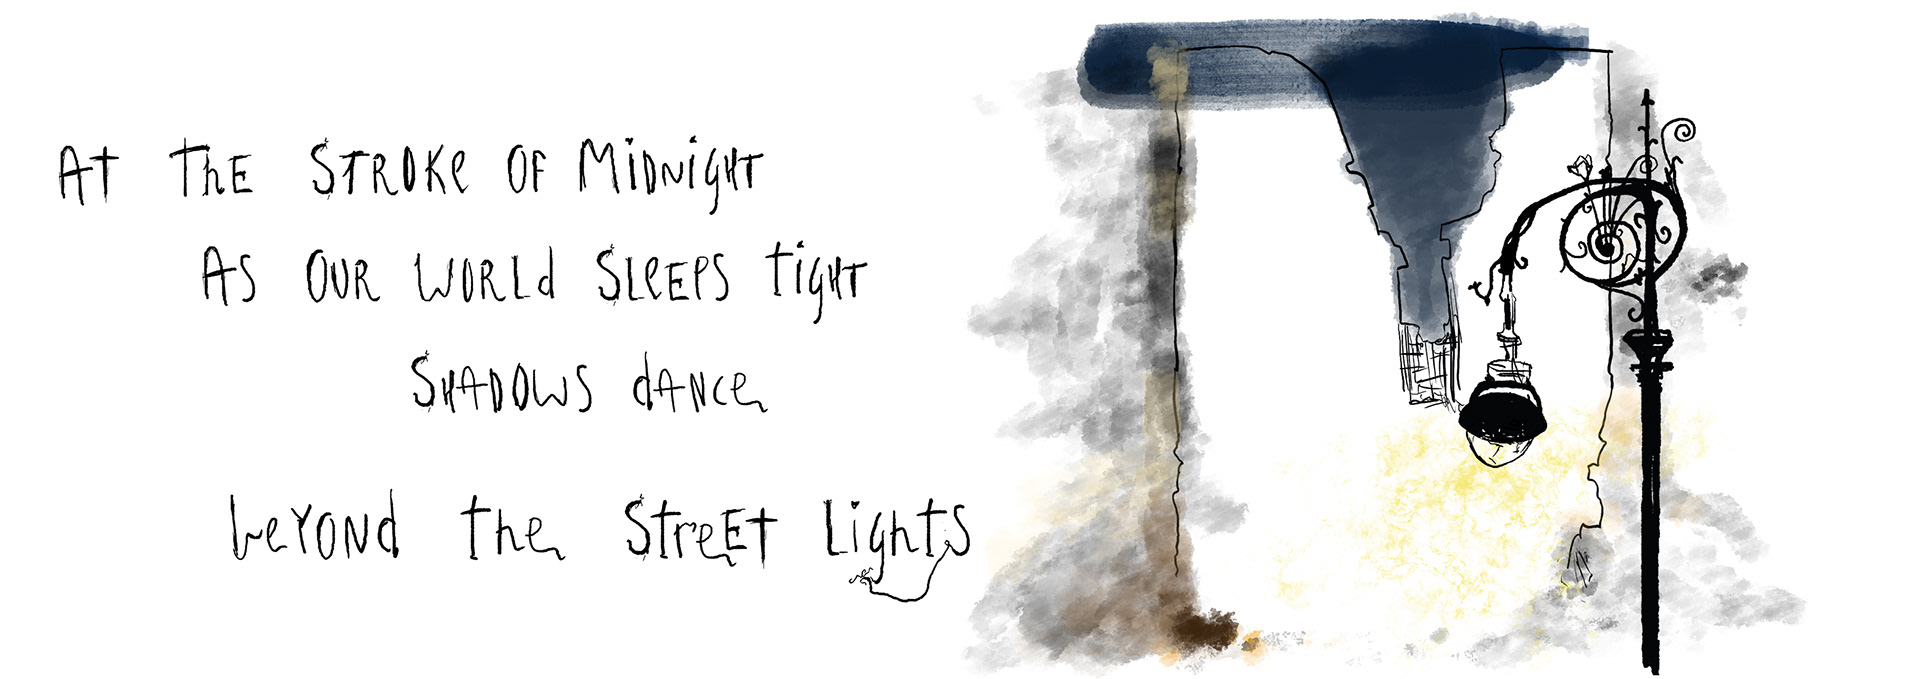 At the stroke of midnight
as our world sleeps tight
shadows dance
beyond the street lights